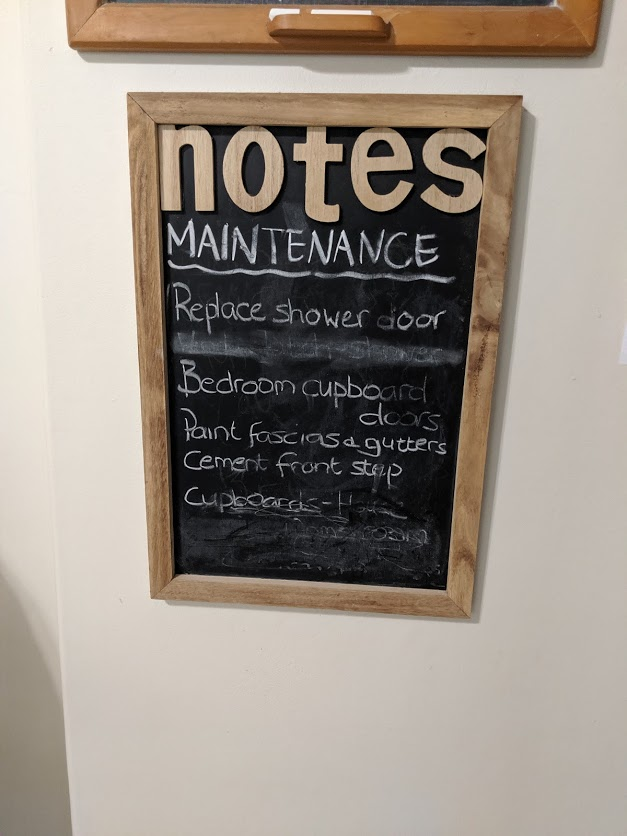 notes
MAINTENANCE
Replace shower door
Bedroom cupboard
doors
Paint fascias & gutters
Cement front step
Cupboards -